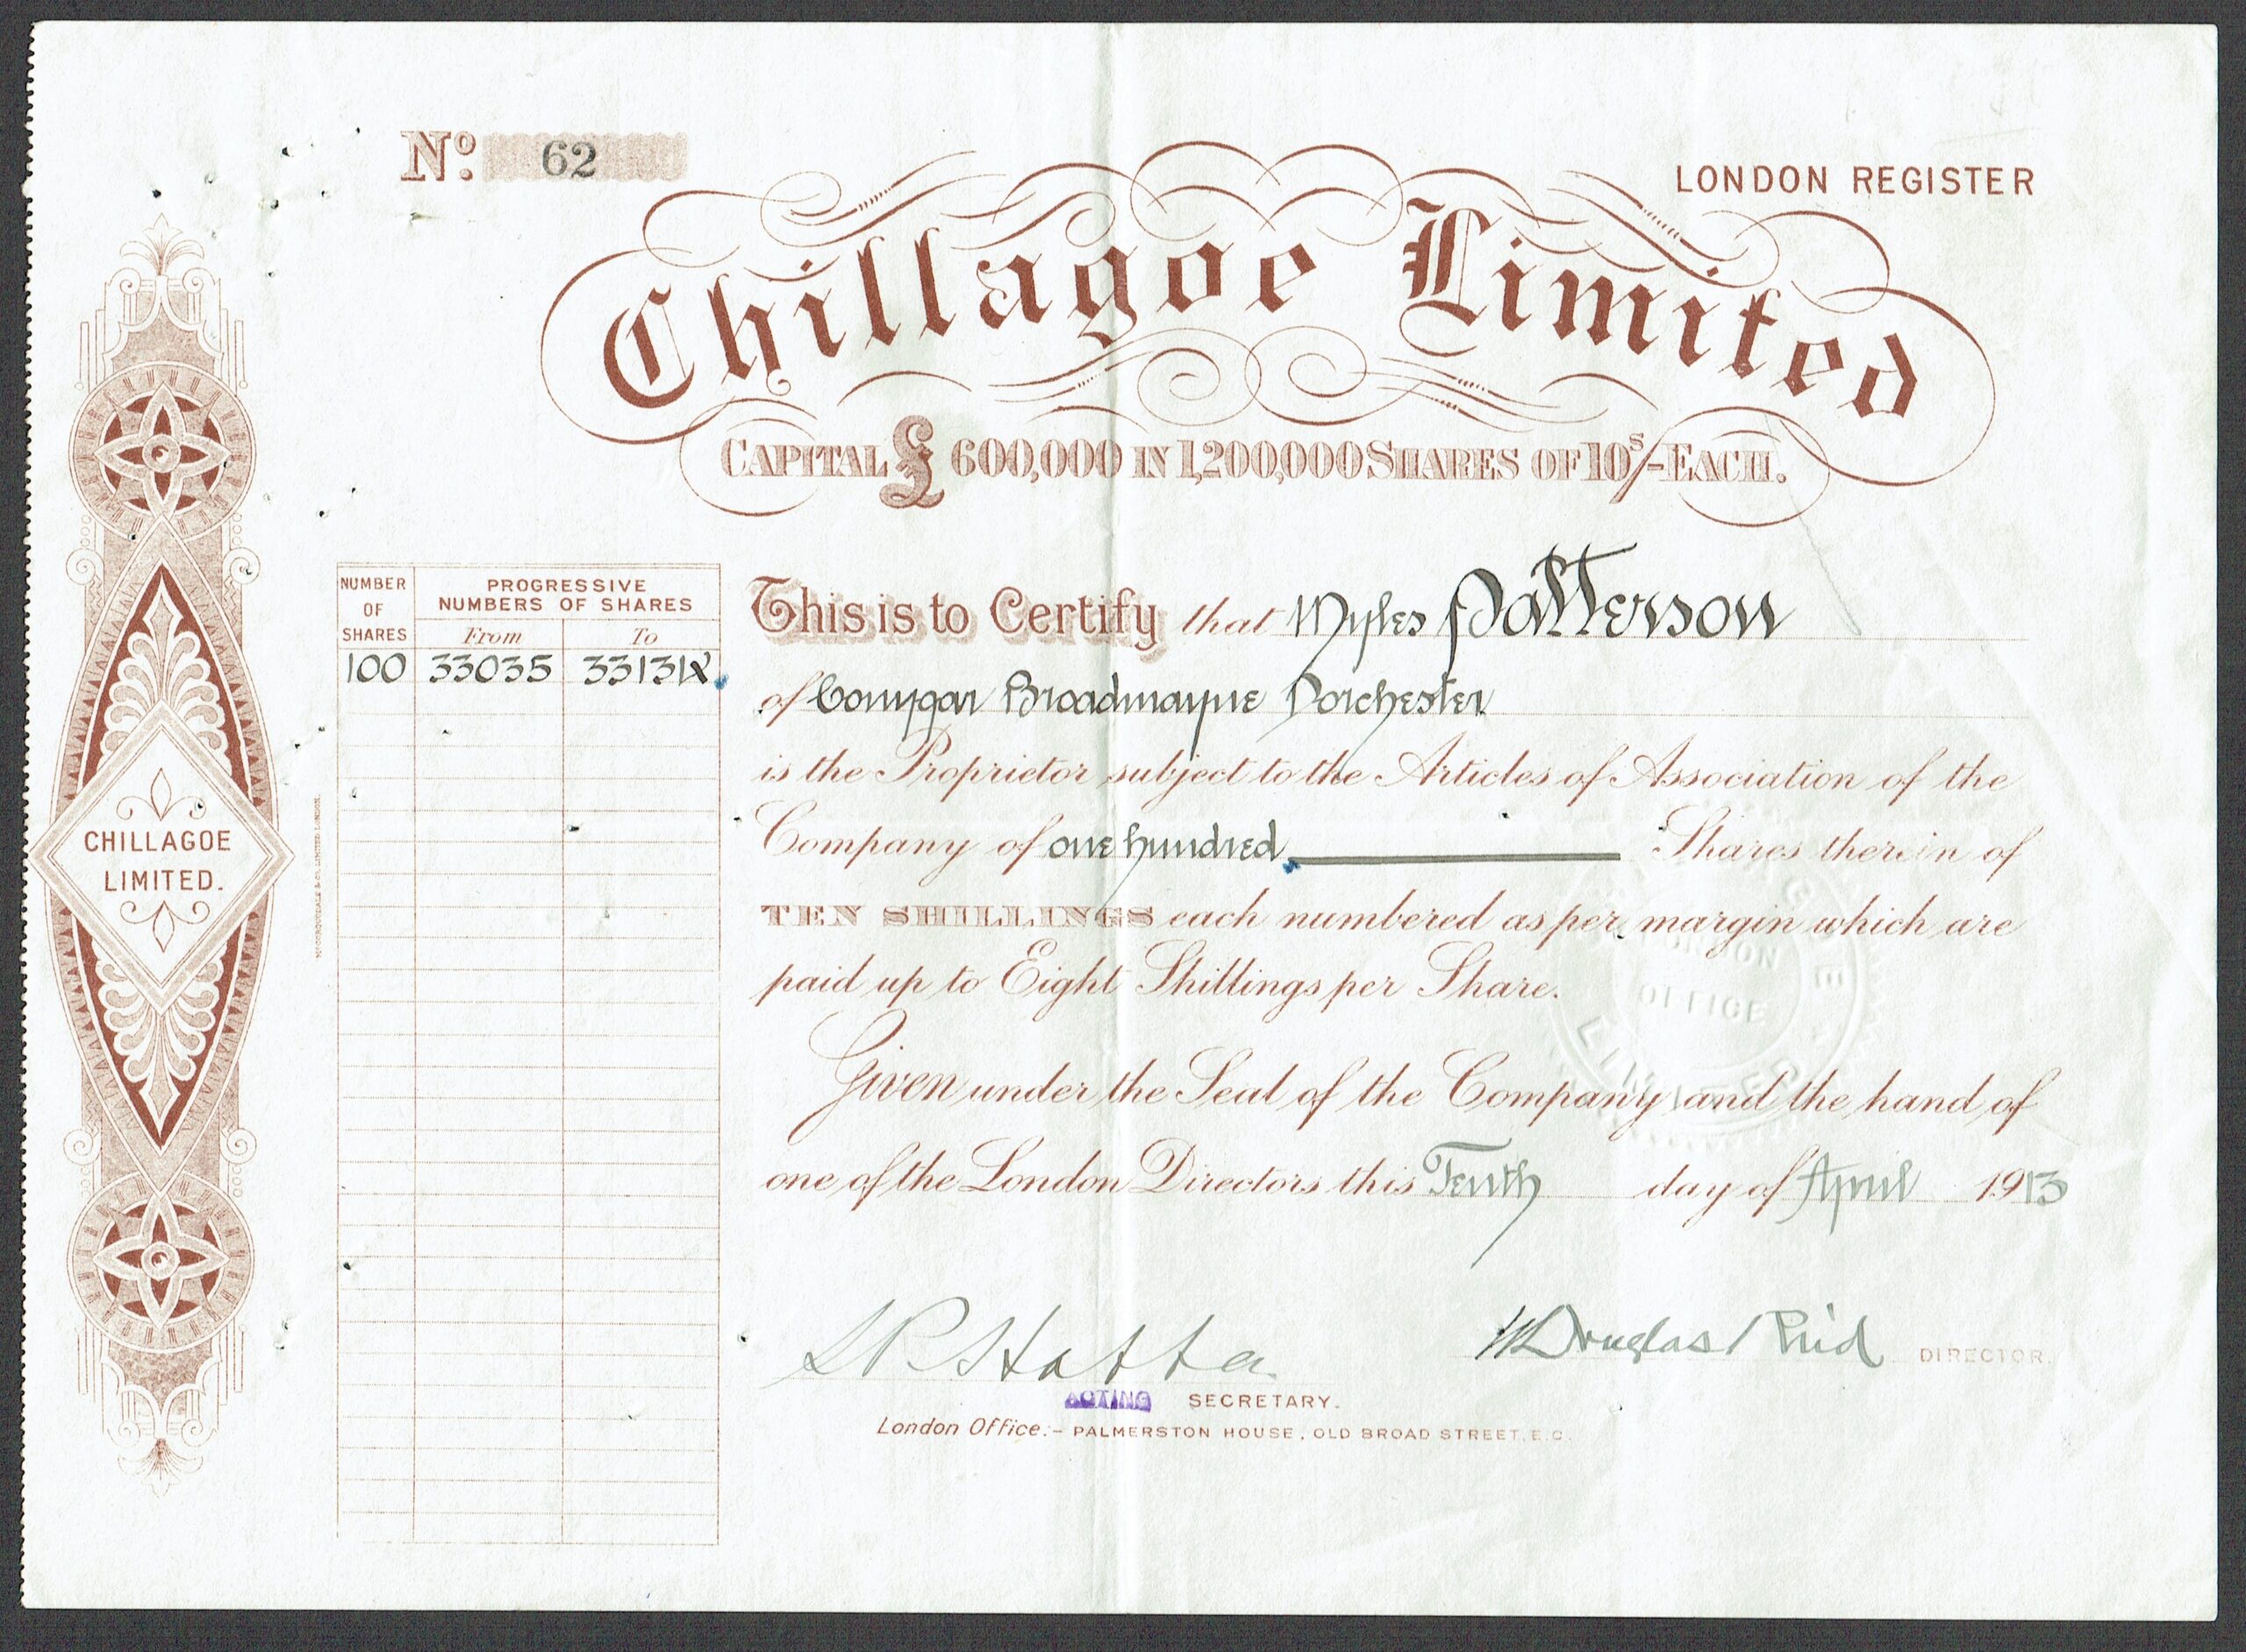 No. 62
LONDON REGISTER
Chillagoe Limited
CAPITAL £600,000 IN 1,200,000 SHARES OF 10s/- EACH.
NUMBER OF SHARES
PROGRESSIVE NUMBERS OF SHARES
From To
100 33035 33134
This is to Certify that Myles Patterson
of Conygar Broadmayne Dorchester
is the Proprietor subject to the Articles of Association of the
Company of one hundred Shares therein of
TEN SHILLINGS each numbered as per margin which are
paid up to Eight Shillings per Share.
Given under the Seal of the Company and the hand of
one of the London Directors this Tenth day of April 1913
CHILLAGOE
LIMITED.
McCORQUODALE & CO. LIMITED. LONDON.
CHILLAGOE LIMITED
LONDON
OFFICE
Douglas Reid DIRECTOR.
ACTING SECRETARY.
London Office:- PALMERSTON HOUSE, OLD BROAD STREET, E.C.